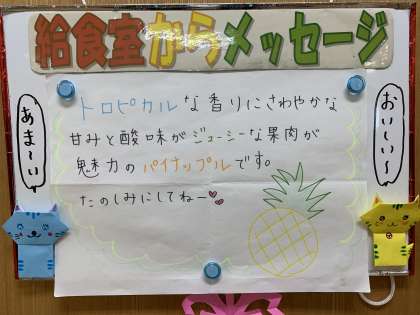 給食室からメッセージ
トロピカルな香りにさわやかな
甘みと酸味がジューシーな果肉が
魅力のパイナップルです。
たのしみにしてねー
あま〜い
おいし〜い